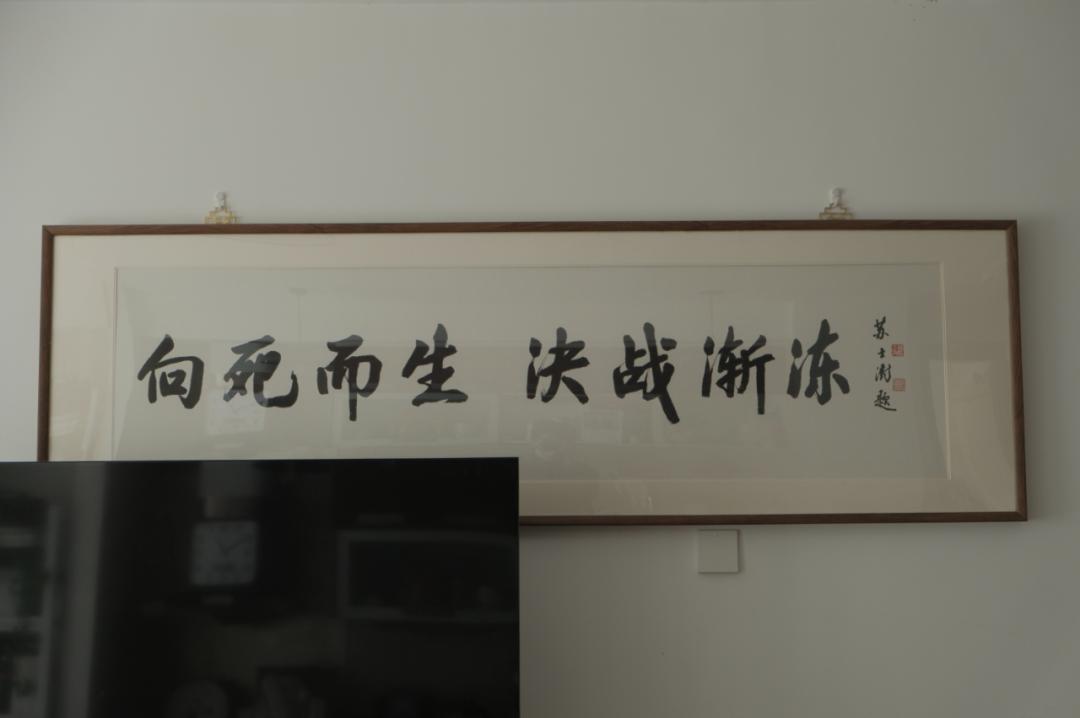 向死而生 决战渐冻
苏士澍题